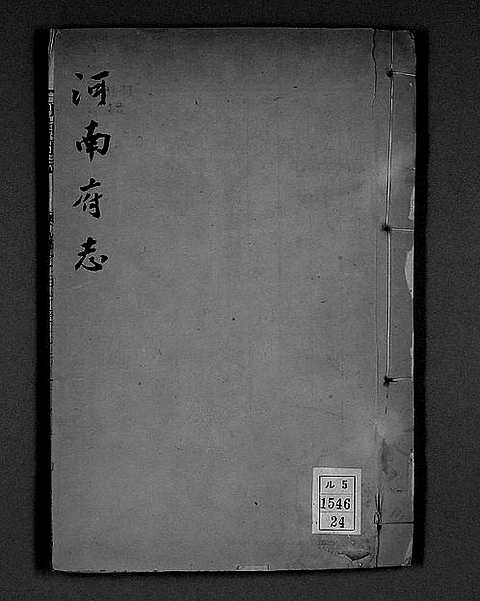 河南府志
ル 5
1546
24